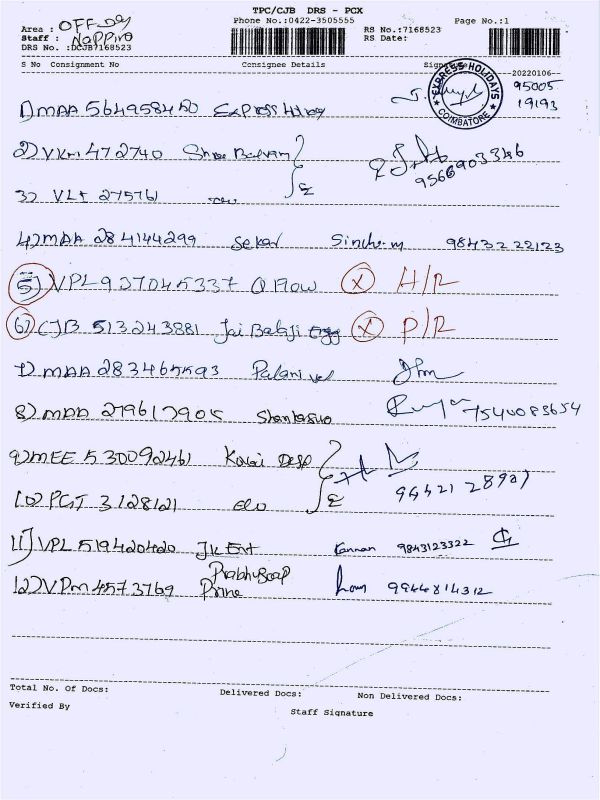 TPC/CJB DRS - PCX
Area : OFF-Day
Phone No.:0422-3505555
RS No.:7168523
Page No.:1
Staff : Nappino
DRS No. :DCJB7168523
RS Date:
S No Consignment No Consignee Details
20220106
EXPRESS HOLIDAYS
COIMBATORE
1) MAA 564958450 95005 19193
2) VKM 472740 Shree
9566903346
3) VLT 275761
4) MAA 284144299 Sekar 98432 22123
5) VPL 927045337 Q Flow X H/R
6) CJB 513243881 Jai Balaji X P/R
7) MAA 283465593 Palanivel
8) MAA 279617905 7540083654
9) MEE 530092461 Kovai
10) PGT 3128121
11) VPL 519420420 JK Ent Kannan 9843123322
12) VPM 4573769 Prabhu Soap 9944814312
Total No. Of Docs: Delivered Docs: Non Delivered Docs:
Verified By Staff Signature